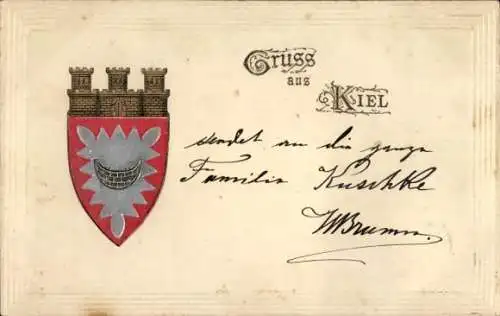 Gruss
aus
KIEL
sendet an die ganze
Familie Kuschke
WBrumm.